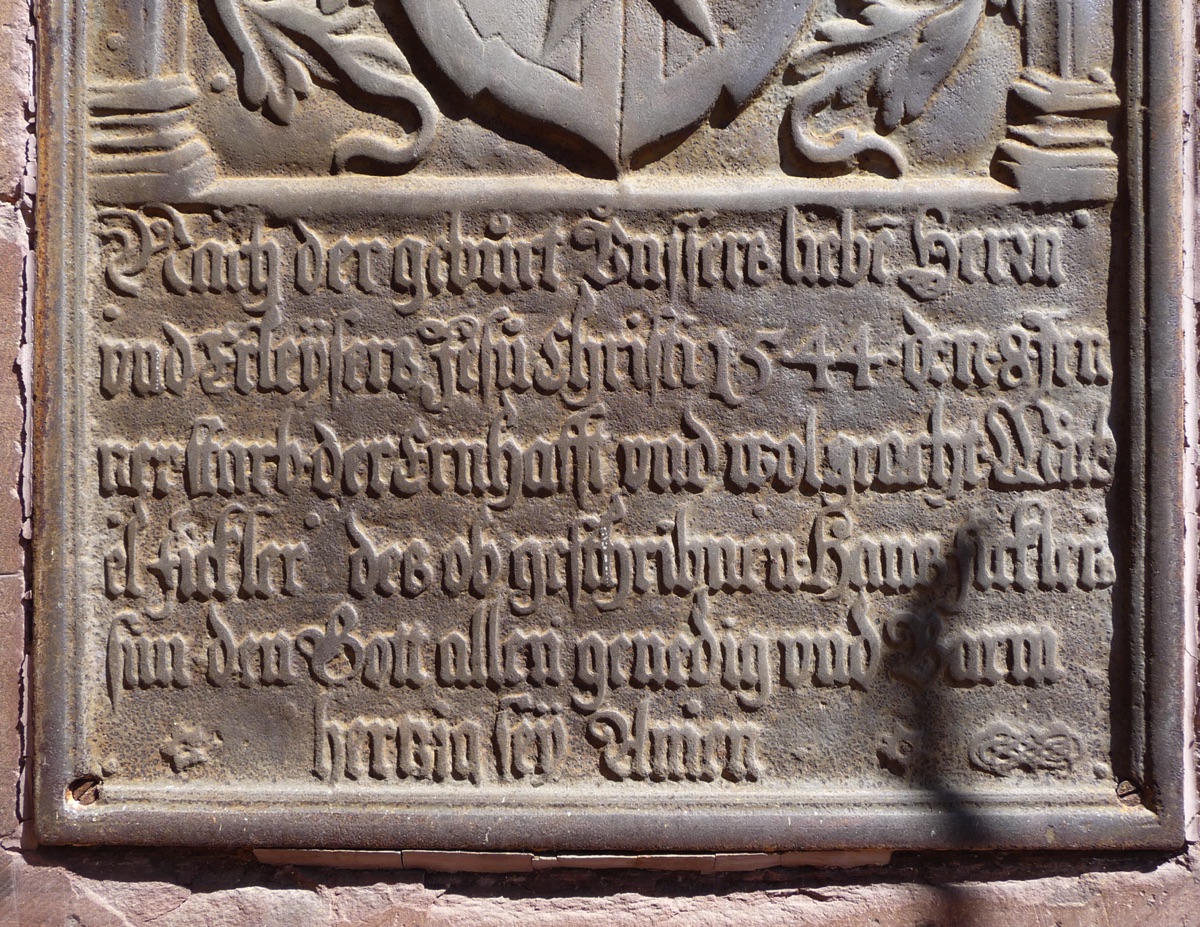 Nach der gebůrt Vnssers liebē Herrn
vnd Erleÿsers Jesů Christi 1544 den 8 Jen
ner starb der Ernhafft vnd wolgeacht Mich
el sickler des ob geschribnen Hans sicklers
sun den Gott allen genedig vnd Barm
hertzig seÿ Amen